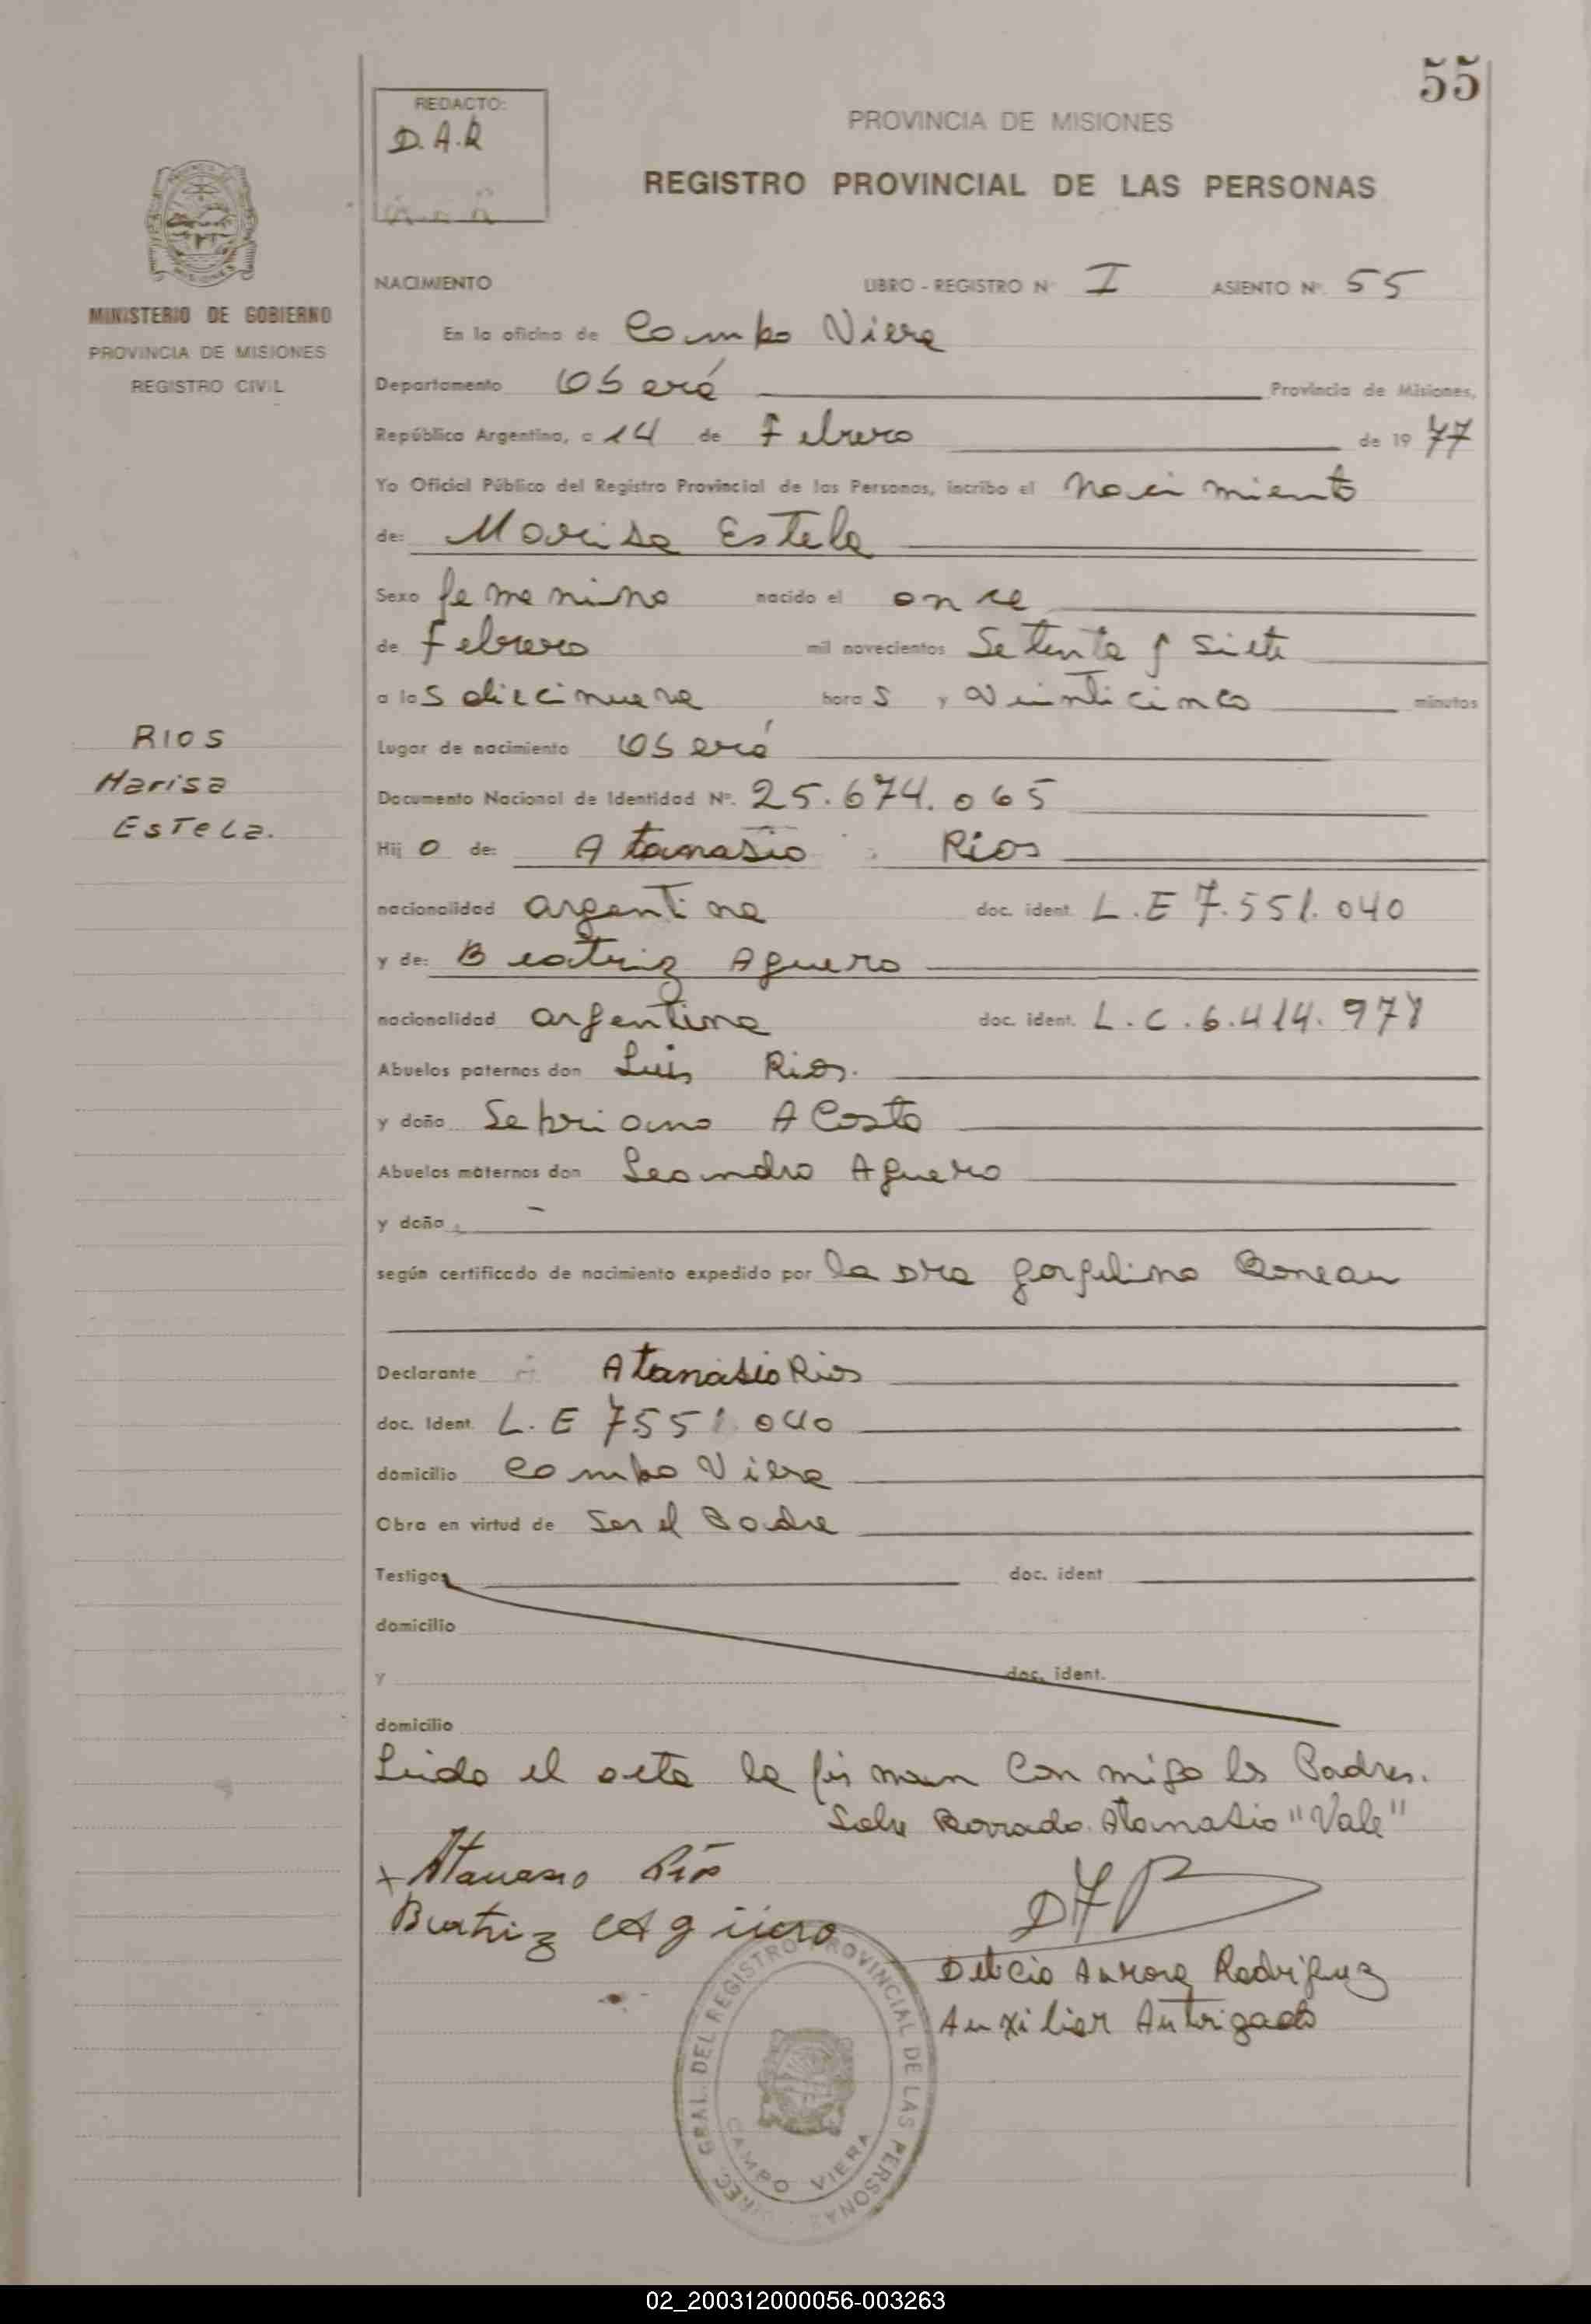 55
REDACTO:
D.A.R
PROVINCIA DE MISIONES
REGISTRO PROVINCIAL DE LAS PERSONAS
MINISTERIO DE GOBIERNO
PROVINCIA DE MISIONES
REGISTRO CIVIL
NACIMIENTO LIBRO - REGISTRO Nº I ASIENTO Nº. 55
En la oficina de Campo Viera
Departamento Oberá Provincia de Misiones,
República Argentina, a 14 de Febrero de 19 77
Yo Oficial Público del Registro Provincial de las Personas, incribo el Nacimiento
de: Marisa Estela
Sexo femenino nacido el once
de Febrero mil novecientos Setenta y Siete
a las diecinueve horas y Veinticinco minutos
Lugar de nacimiento Oberá
RIOS
Marisa
Estela.
Documento Nacional de Identidad Nº. 25.674.065
Hij o de: Atanasio Rios
nacionalidad argentina doc. ident. L.E 7.551.040
y de: Beatriz Aguero
nacionalidad argentina doc. ident. L.C.6.414.978
Abuelos paternos don Luis Rios.
y doña Sepriana Acosta
Abuelos maternos don Leandro Aguero
y doña -
según certificado de nacimiento expedido por la Dra
Declarante Atanasio Rios
doc. Ident. L.E 7551.040
domicilio Campo Viera
Obra en virtud de Ser el Padre
Testigos doc. ident
domicilio
y doc. ident.
domicilio
Leida el acta la firman Con migo los Padres.
Sobre Borrado Atanasio "Vale"
Atanasio Rios
Beatriz Agüero
Delicia Aurora Rodriguez
Auxiliar Autorizado
DIREC. GRAL. DEL REGISTRO PROVINCIAL DE LAS PERSONAS
CAMPO VIERA
02_200312000056-003263